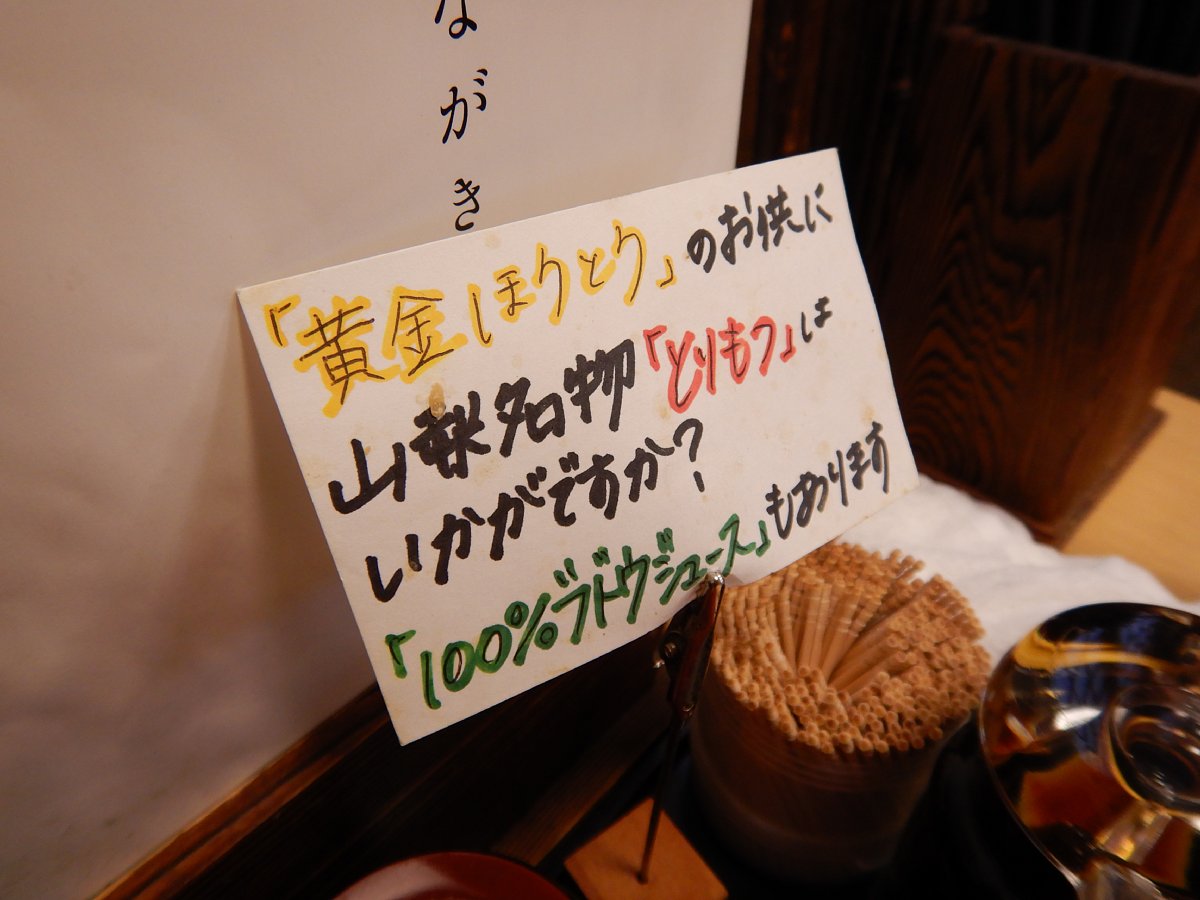 ながき
「黄金ほうとう」のお供に
山梨名物「とりもつ」は
いかがですか？
「100%ブドウジュース」もあります